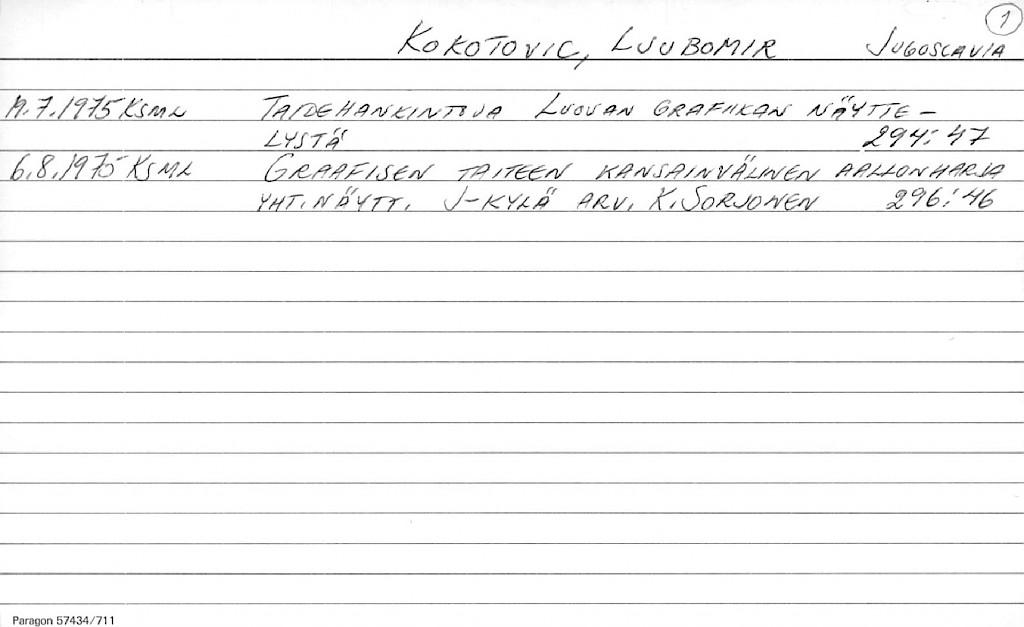 1
KOKOTOVIC, LJUBOMIR JUGOSLAVIA
17.7.1975 KSML TAIDEHANKINTOJA LUOVAN GRAFIIKAN NÄYTTE-
LYSTÄ 294:47
6.8.1975 KSML GRAAFISEN TAITEEN KANSAINVÄLINEN AALLONHARJA
YHT.NÄYTT. J-KYLÄ ARV. K.SORJONEN 296:46
Paragon 57434/711